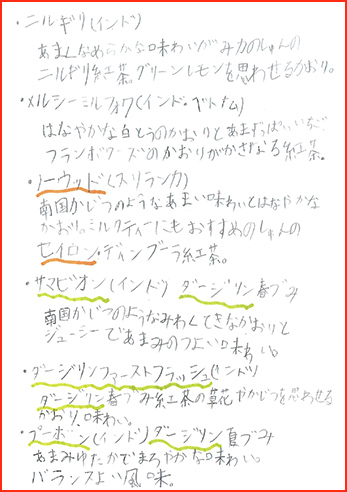 ・ニルギリ(インド)
あまくなめらかな味わいがみ力のしゅんの
ニルギリ紅茶。グリーンレモンを思わせるかおり。
・メルシーミルフォワ(インド・ベトナム)
はなやかな白とうのかおりとあまずっぱいいちご
フランボワーズのかおりがかさなる紅茶。
・ノーウッド(スリランカ)
南国かじつのようなあまい味わいとはなやかな
かおり。ミルクティーにもおすすめのしゅんの
セイロン・ディンブーラ紅茶。
・サマビオン(インド) ダージリン春づみ
南国かじつのようなみわくてきなかおりと
ジューシーであまみのつよい味わい。
・ダージリンファーストフラッシュ(インド)
ダージリン春づみ紅茶の草花やかじつを思わせる
かおり、味わい。
・プーボン(インド)ダージリン夏づみ
あまみゆたかでまろやかな味わい。
バランスよい風味。